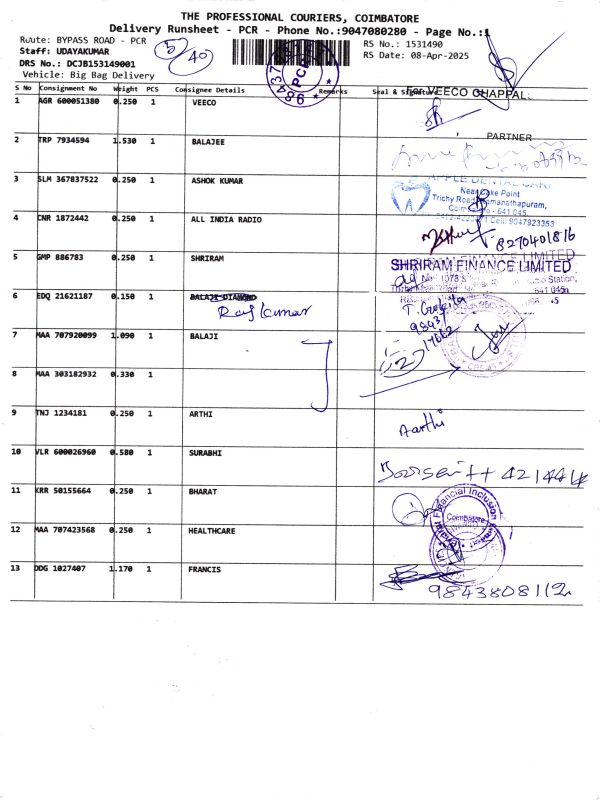 THE PROFESSIONAL COURIERS, COIMBATORE
Delivery Runsheet - PCR - Phone No.:9047080280 - Page No.:1
Ruute: BYPASS ROAD - PCR
Staff: UDAYAKUMAR
DRS No.: DCJB153149001
Vehicle: Big Bag Delivery
5/40
RS No.: 1531490
RS Date: 08-Apr-2025
PCR
S No Consignment No Weight PCS Consignee Details Remarks Seal & Signature
For VEECO CHAPPAL
1 AGR 600051380 0.250 1 VEECO
PARTNER
2 TRP 7934594 1.530 1 BALAJEE
3 SLM 367837522 0.250 1 ASHOK KUMAR
APPLE DENTAL CARE
Near Cake Point
Trichy Road, Ramanathapuram,
Coimbatore - 641 045.
Cell: 9047923353
4 CNR 1872442 0.250 1 ALL INDIA RADIO
8270401816
5 GMP 886783 0.250 1 SHRIRAM
SHRIRAM FINANCE LIMITED
6 EDQ 21621187 0.150 1 BALAJI DIAMOND
Raj kumar
T. Gokila
98431
17662
7 MAA 707920099 1.090 1 BALAJI
8 MAA 303182932 0.330 1
9 TNJ 1234181 0.250 1 ARTHI
Aarthi
10 VLR 600026960 0.580 1 SURABHI
11 KRR 50155664 0.250 1 BHARAT
Financial Inclusion
Coimbatore
12 MAA 707423568 0.250 1 HEALTHCARE
13 DDG 1027407 1.170 1 FRANCIS
9843808112